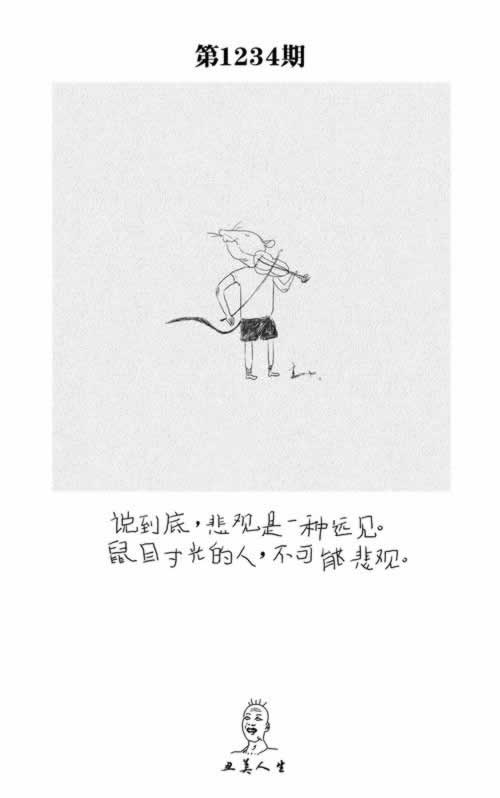 第1234期
说到底，悲观是一种远见。
鼠目寸光的人，不可能悲观。
丑美人生